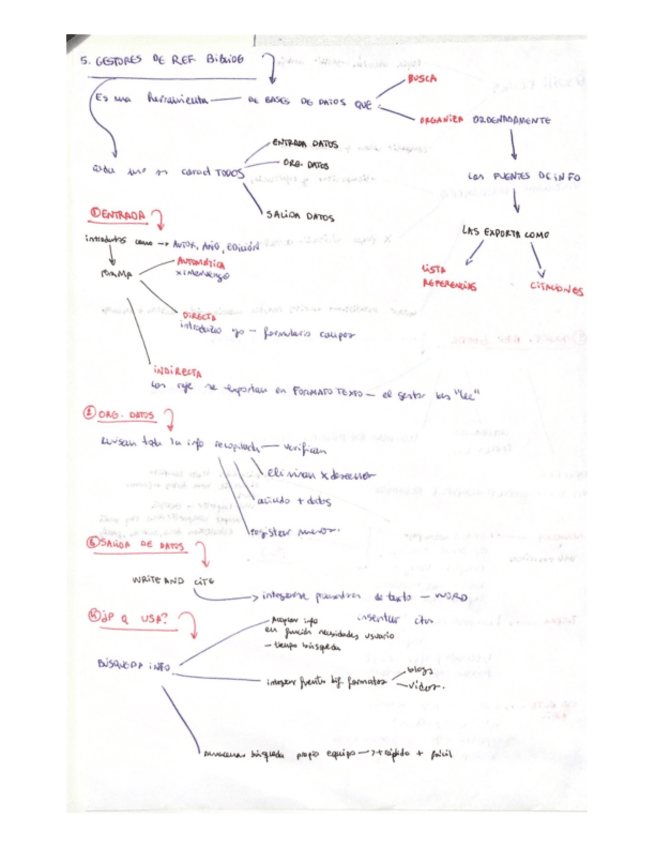 5. GESTORES DE REF BIBLIOG
Es una herramienta — DE BASES DE DATOS QUE
BUSCA
ORGANIZA ORDENADAMENTE
LAS FUENTES DE INFO
LAS EXPORTA COMO
LISTA REFERENCIAS
CITACIONES
TODOS
ENTRADA DATOS
ORG. DATOS
SALIDA DATOS
① ENTRADA
introducimos como → AUTOR, AÑO, EDICIÓN
AUTOMÁTICA
DIRECTA
introduzco yo — formulario campos
INDIRECTA
Las refe se exportan en FORMATO TEXTO — el gestor las "lee"
② ORG. DATOS
Revisan toda la info recopilada — verifican
eliminan
añado + datos
registrar nuevos.
③ SALIDA DE DATOS
WRITE AND CITE
→ integrarse procesadores de texto — WORD
insertar citas
④ ¿P Q USA?
BÚSQUEDA INFO
Acoplar info
en función necesidades usuario
— tiempo búsqueda
integrar fuentes formatos
blogs
vídeos.
almacenar búsqueda propio equipo → + rápido + fácil